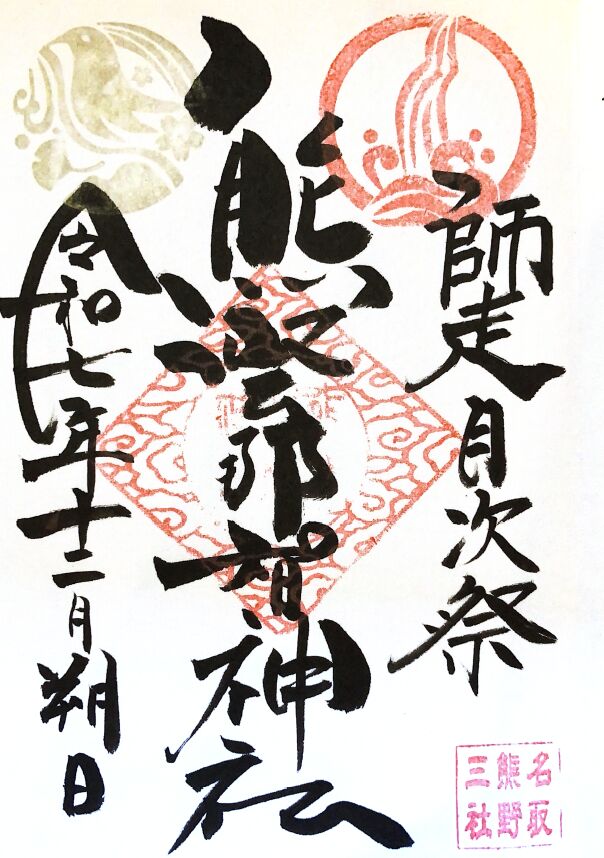 師走月次祭
熊野那智神社
令和七年十二月朔日
名取
熊野
三社